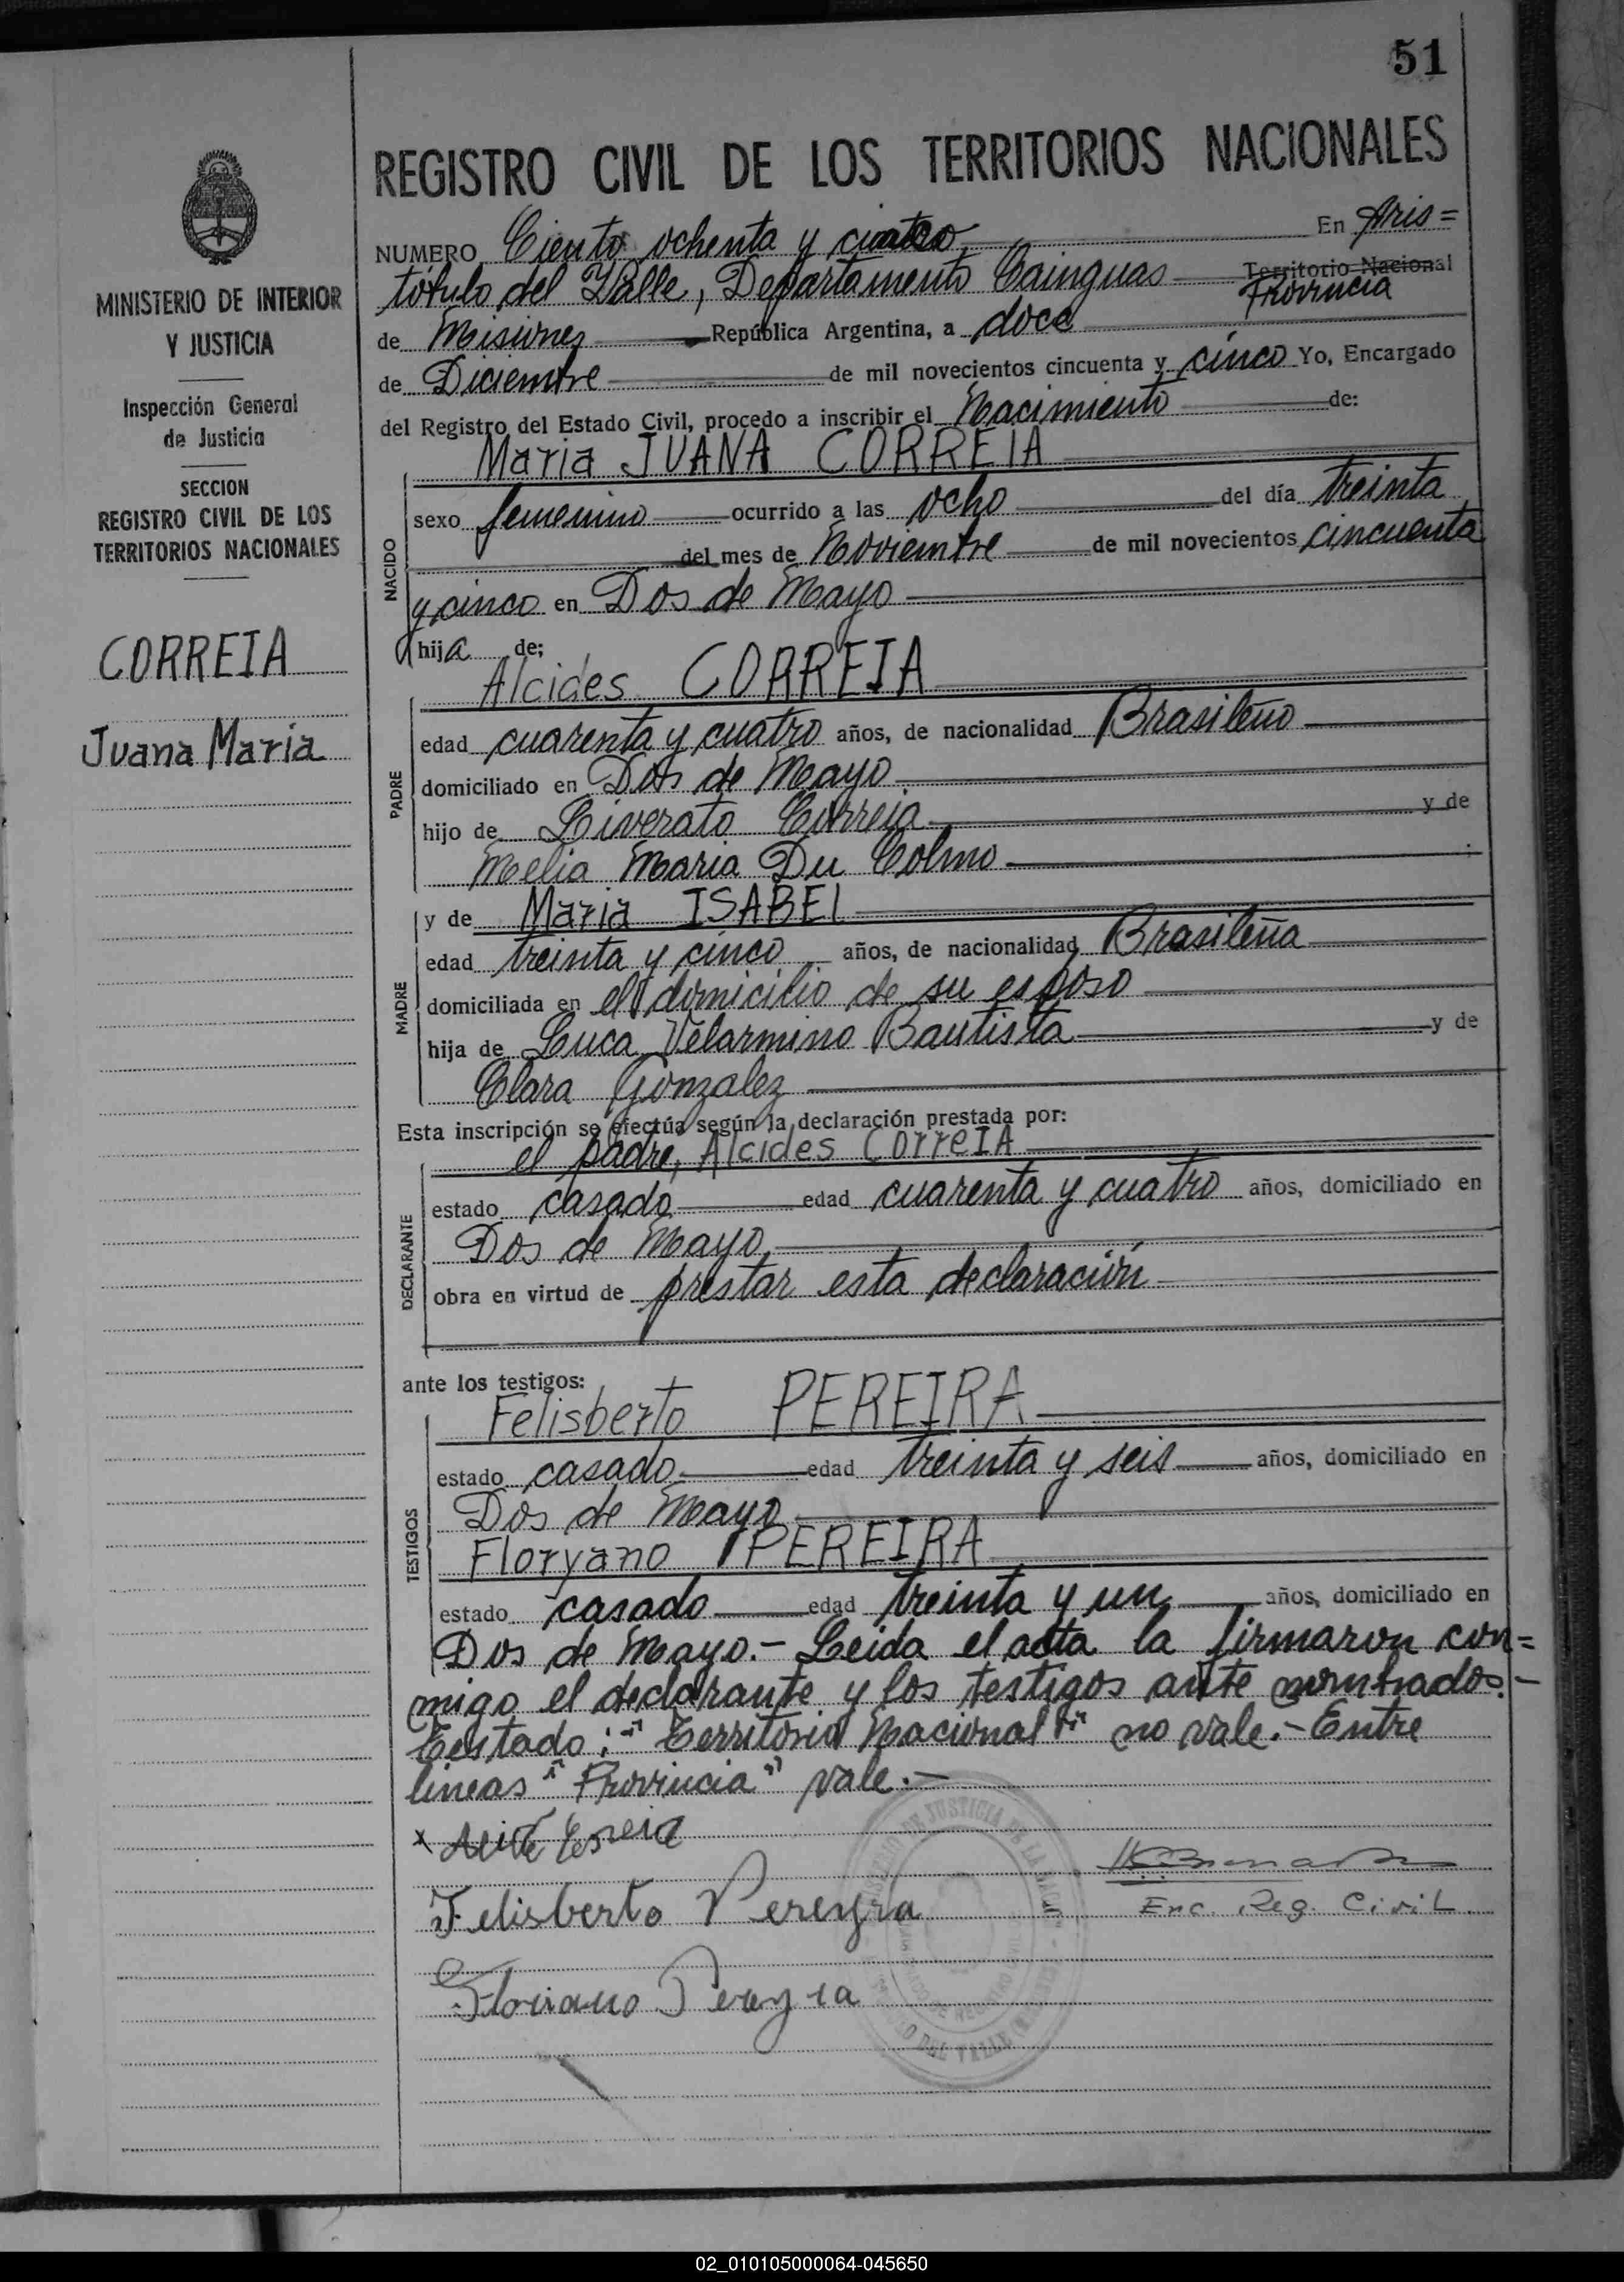 51
REGISTRO CIVIL DE LOS TERRITORIOS NACIONALES
NUMERO Ciento ochenta y cuatro En Aris=
tóbulo del Valle, Departamento Cainguas Territorio Nacional
Provincia
de Misiones República Argentina, a doce
de Diciembre de mil novecientos cincuenta y cinco Yo, Encargado
del Registro del Estado Civil, procedo a inscribir el Nacimiento de:
Maria JUANA CORREIA
sexo femenino ocurrido a las ocho del día treinta
del mes de Noviembre de mil novecientos cincuenta
y cinco en Dos de Mayo
hija de:
Alcides CORREIA
edad cuarenta y cuatro años, de nacionalidad Brasileño
domiciliado en Dos de Mayo
hijo de Liverato Correia y de
Melia Maria Du Colmo
y de Maria ISABEL
edad treinta y cinco años, de nacionalidad Brasileña
domiciliada en el domicilio de su esposo
hija de Luca Velarmino Bautista y de
Clara Gonzalez
Esta inscripción se efectúa según la declaración prestada por:
el padre, Alcides CorreIA
estado casado edad cuarenta y cuatro años, domiciliado en
Dos de Mayo
obra en virtud de prestar esta declaración
ante los testigos:
Felisberto PEREIRA
estado casado edad treinta y seis años, domiciliado en
Dos de Mayo
Floryano PEREIRA
estado casado edad treinta y un años, domiciliado en
Dos de Mayo.- Leida el acta la firmaron con=
migo el declarante y los testigos ante nombrados.-
Testado: "Territorio Nacional" no vale.- Entre
lineas "Provincia" vale.-
Felisberto Pereyra
Enc. Reg. Civil
Floriano Pereyra
MINISTERIO DE INTERIOR
Y JUSTICIA
Inspección General
de Justicia
SECCION
REGISTRO CIVIL DE LOS
TERRITORIOS NACIONALES
CORREIA
Juana Maria
NACIDO
PADRE
MADRE
DECLARANTE
TESTIGOS
02_010105000064-045650